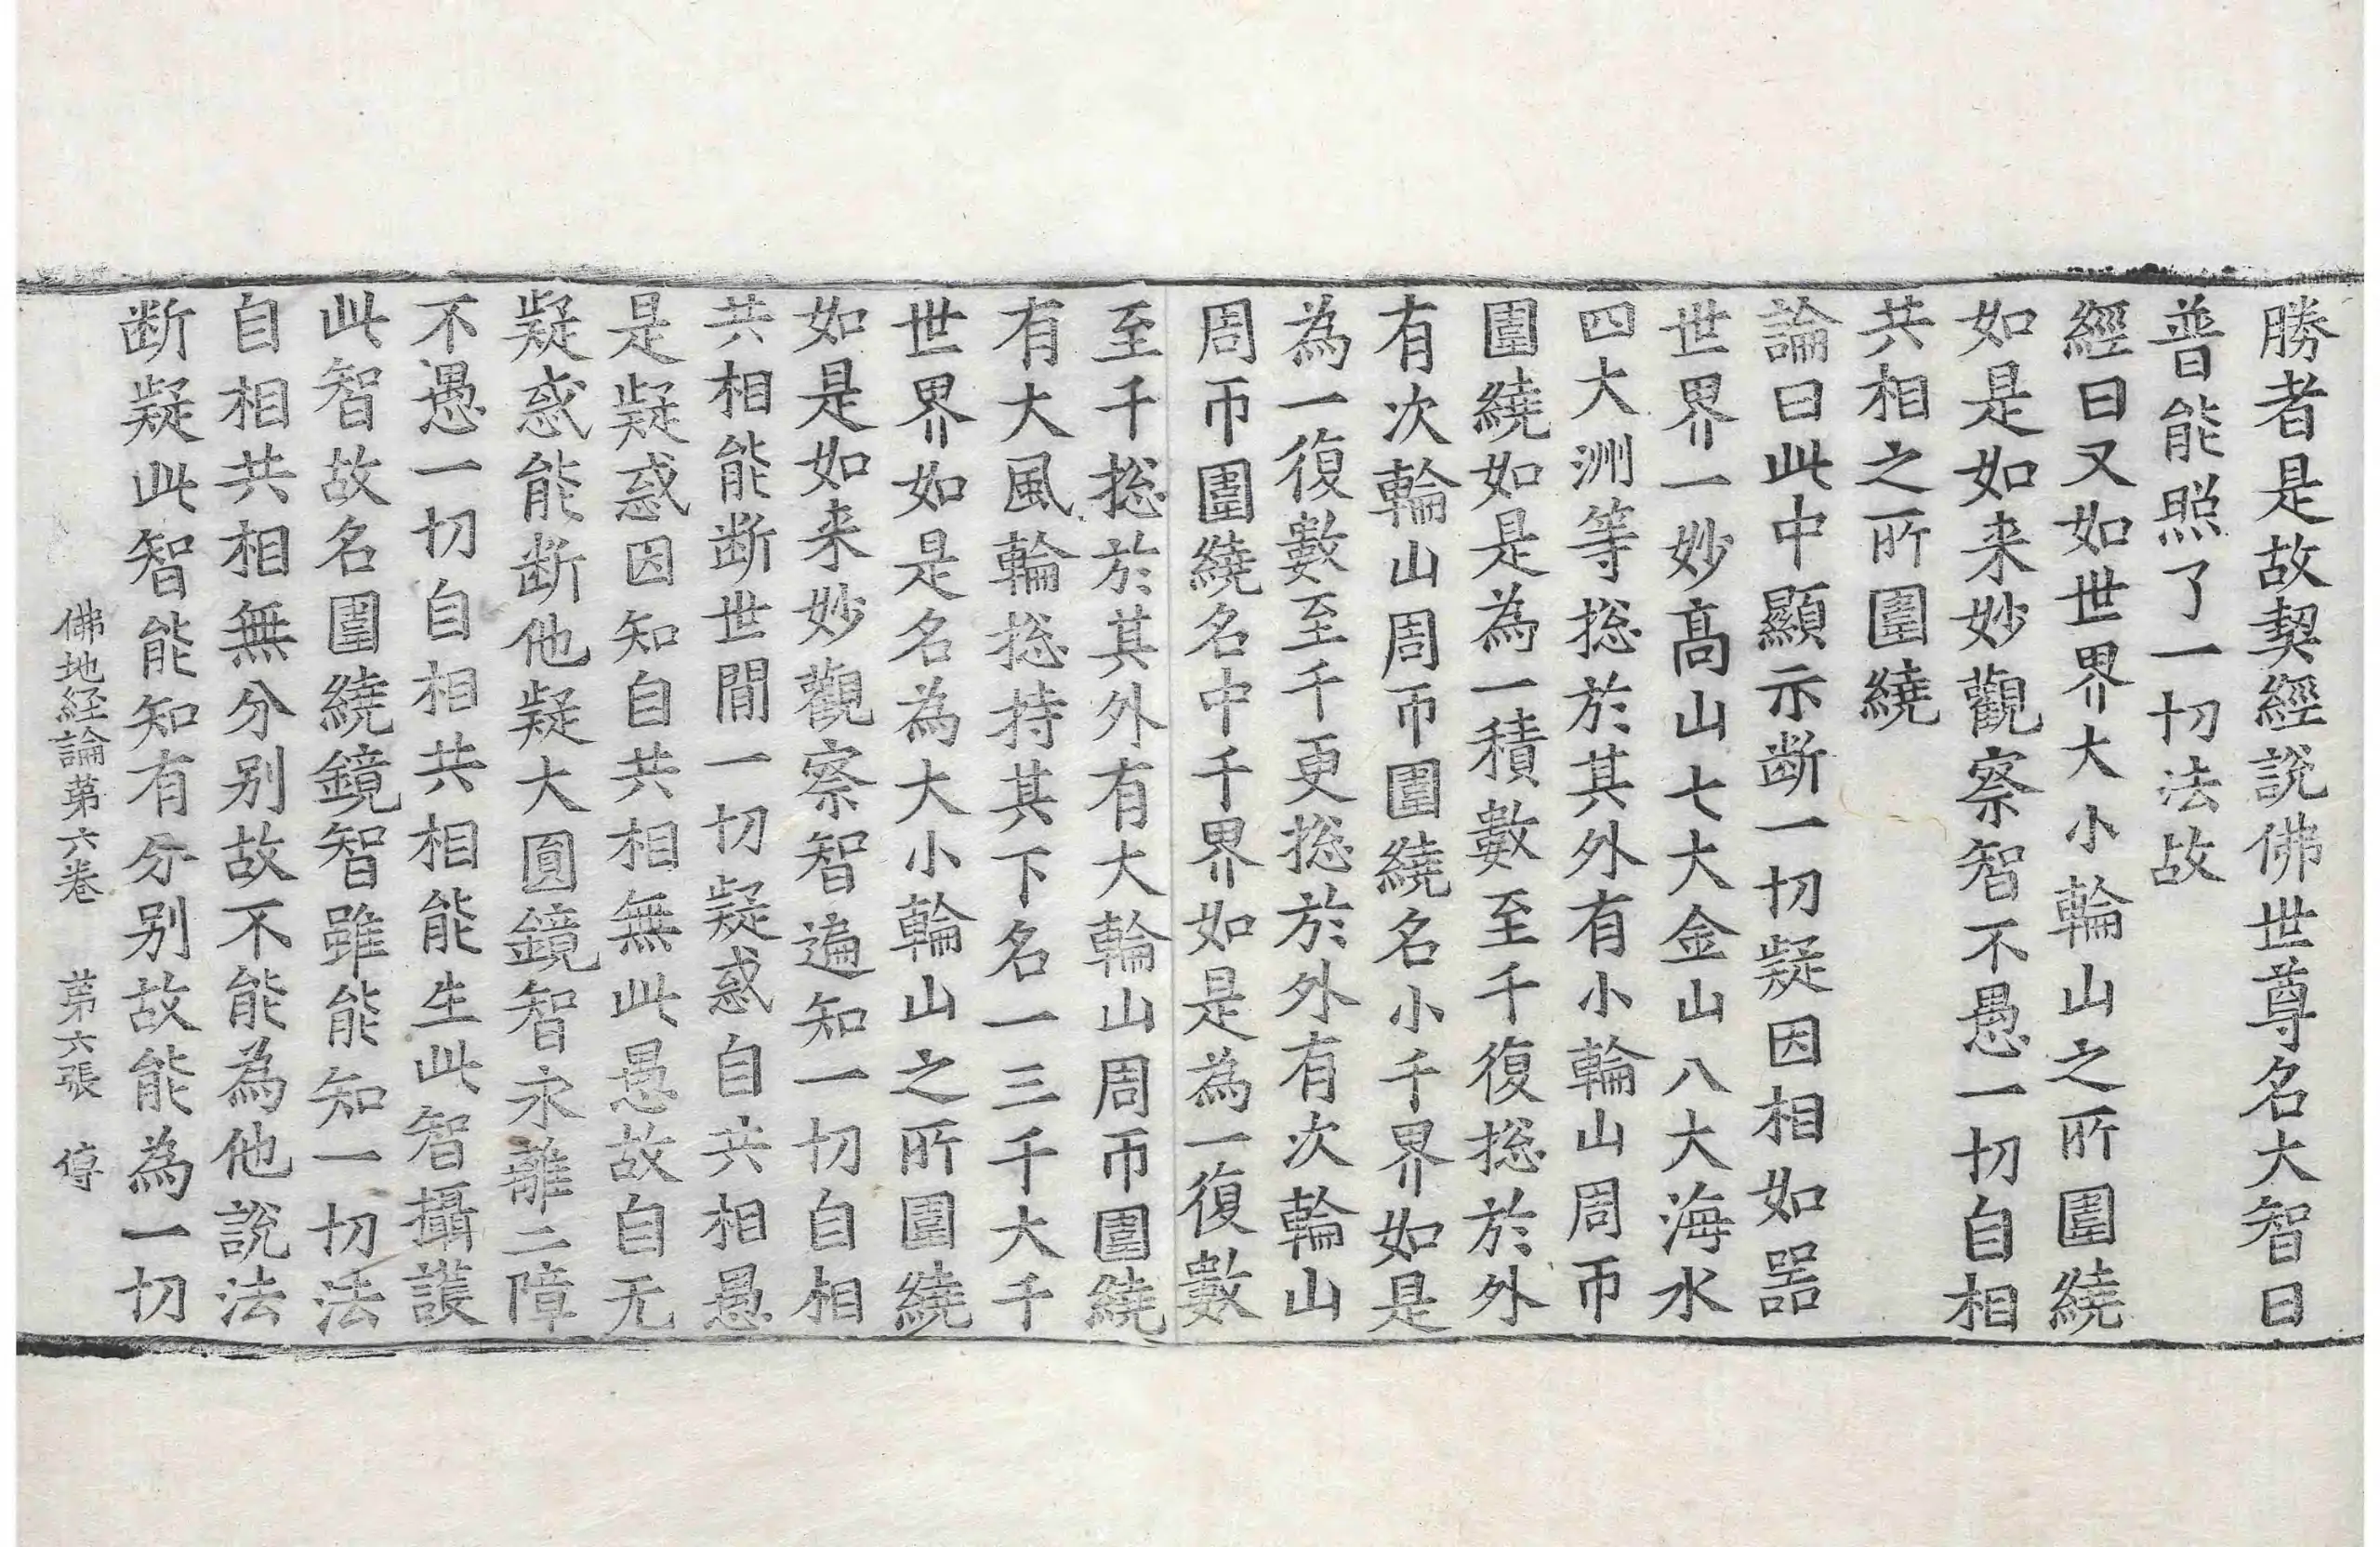 勝者是故契經說佛世尊名大智日
普能照了一切法故
經曰又如世界大小輪山之所圍繞
如是如来妙觀察智不愚一切自相
共相之所圍繞
論曰此中顯示断一切疑因相如器
世界一妙高山七大金山八大海水
四大洲等捴於其外有小輪山周帀
圍繞如是為一積數至千復捴於外
有次輪山周帀圍繞名小千界如是
為一復數至千更捴於外有次輪山
周帀圍繞名中千界如是為一復數
至千捴於其外有大輪山周帀圍繞
有大風輪捴持其下名一三千大千
世界如是名為大小輪山之所圍繞
如是如来妙觀察智遍知一切自相
共相能断世間一切疑惑自共相愚
是疑惑因知自共相無此愚故自无
疑惑能断他疑大圓鏡智永離二障
不愚一切自相共相能生此智攝護
此智故名圍繞鏡智雖能知一切法
自相共相無分别故不能為他說法
断疑此智能知有分别故能為一切
佛地経論苐六卷 苐六張 傳